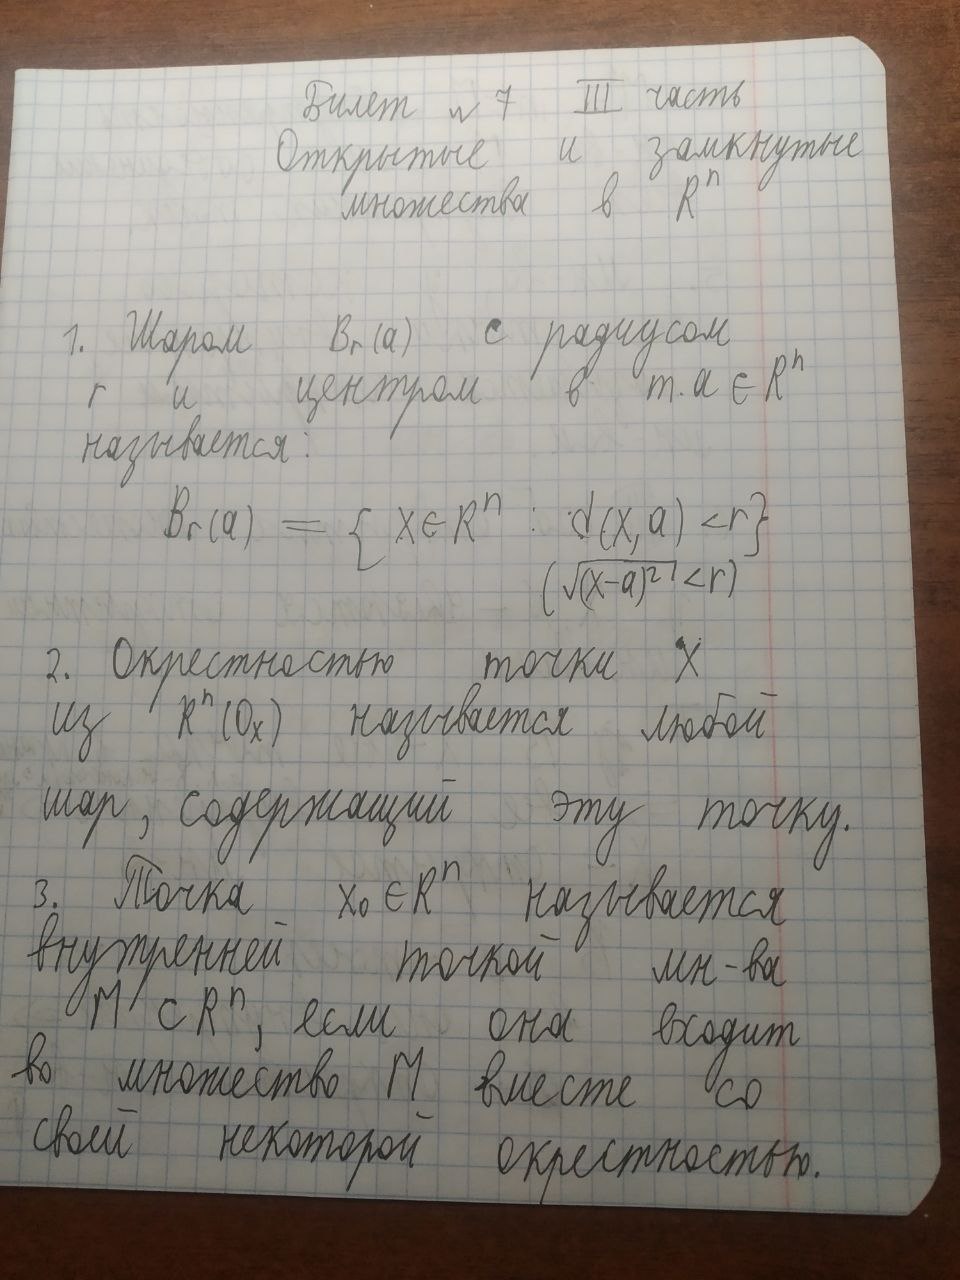 Билет № 7 III часть
Открытые и замкнутые
множества в Rⁿ
1. Шаром Bᵣ(a) с радиусом
r и центром в т. a ∈ Rⁿ
называется:
Bᵣ(a) = { x ∈ Rⁿ : d(x,a) < r}
(√(x-a)² < r)
2. Окрестностью точки x
из Rⁿ (Oₓ) называется любой
шар, содержащий эту точку.
3. Точка x₀ ∈ Rⁿ называется
внутренней точкой мн-ва
M ⊂ Rⁿ, если она входит
во множество M вместе со
своей некоторой окрестностью.